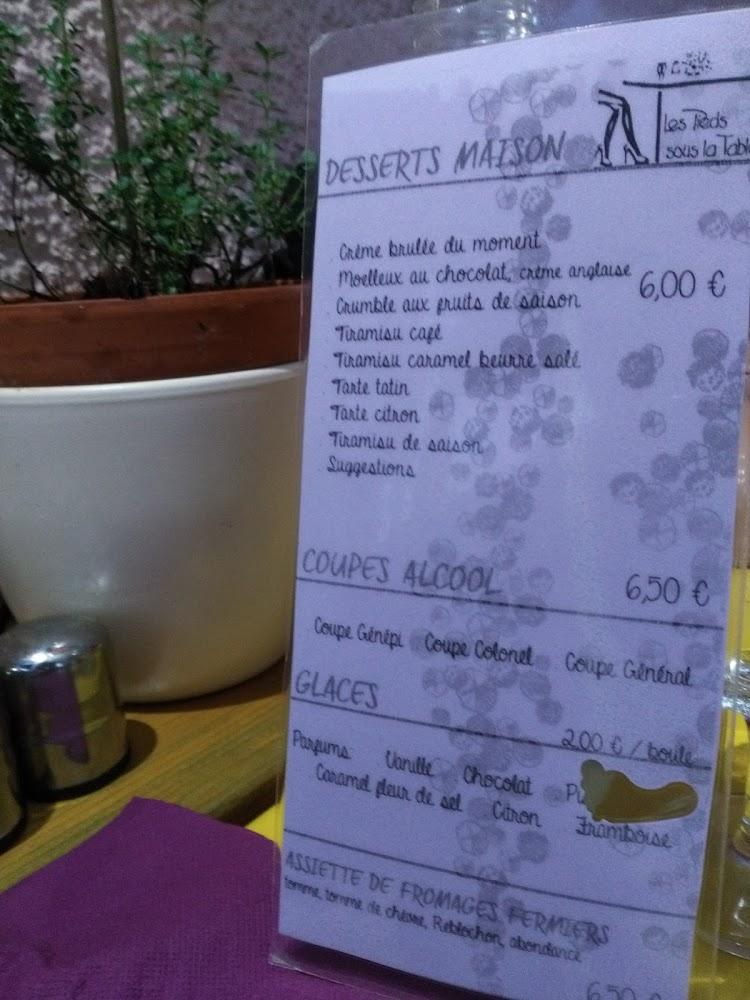 Les Pieds
sous la Table
DESSERTS MAISON
Crème brulée du moment
Moelleux au chocolat, crème anglaise
6,00 €
Crumble aux fruits de saison
Tiramisu café
Tiramisu caramel beurre salé
Tarte tatin
Tarte citron
Tiramisu de saison
Suggestions
COUPES ALCOOL 6,50 €
Coupe Génépi Coupe Colonel Coupe Général
GLACES
2.00 € / boule
Parfums: Vanille Chocolat
Caramel fleur de sel Citron Framboise
ASSIETTE DE FROMAGES FERMIERS
tomme, tomme de chèvre, Reblochon, abondance
6,50